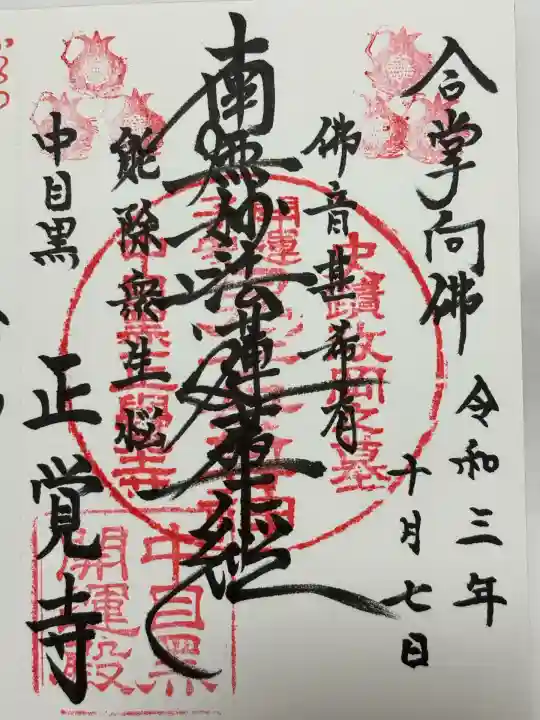 合掌向佛
令和三年
十月七日
佛音甚希有
南無妙法蓮華経
能除衆生悩
中目黒
正覚寺
中目黒
開運殿